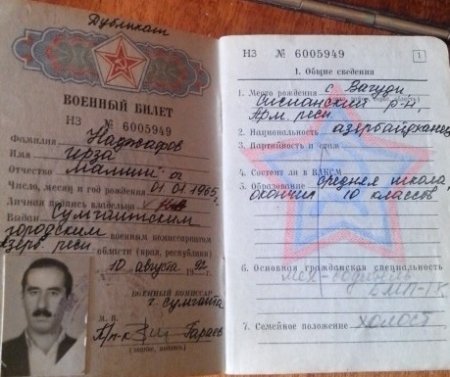 Дубликат
ВОЕННЫЙ БИЛЕТ
НЗ № 6005949
Фамилия Наджафов
Имя Мирза
Отчество оглы
Число, месяц и год рождения 01.01.1965
Личная подпись владельца
Выдан Сумгаитским
городским военным комиссариатом
Азерб. респ
области (края, республики)
10 августа 92 г.
ВОЕННЫЙ КОМИССАР
г. Сумгаита
М. П.
П/п-к Гараев
(звание, подпись)
НЗ № 6005949
1
I. Общие сведения
1. Место рождения с. Вагуди
Сисианский р-н,
Арм. респ
2. Национальность азербайджанец
3. Партийность и стаж
4. Состоит ли в ВЛКСМ
5. Образование средняя школа,
окончил 10 классов
6. Основная гражданская специальность
7. Семейное положение холост